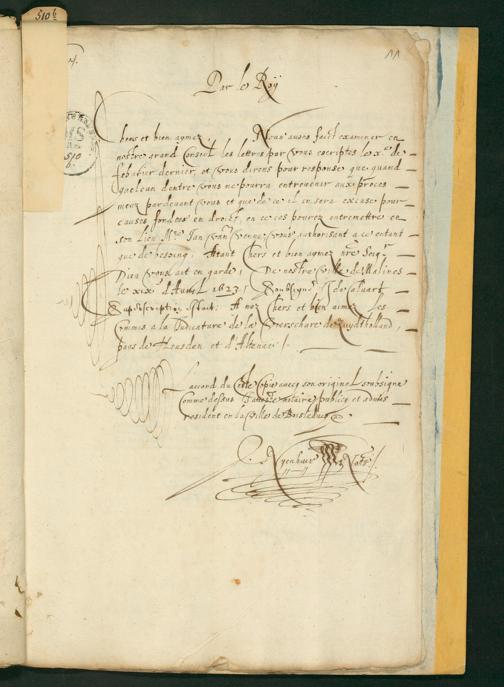 510 b
11
Par le Roÿ
Chers et bien amez Nous avons faict examiner en
nostre grand Conseil les lettres par vous escriptes le x.e de
febvrier dernier, et vous dirons pour response que quand
quelcun dentre vous ne pourra entrevenir aux proces
meuz pardevant vous et que de ce il sera excusé pour
causes fondees en droict, en ce cas pourrez entremettre en
son lieu M.e Jan van Venne vous authorisant a ce entant
que de besoing. Atant Chers et bien amez nre Seigr
Dieu vous ait en garde, De nostre ville de Malines
le xix.e d'Avril 1623, Soubsigné
Superscription estoit: A noz Chers et bien amez Les
Commis a la Judicature de la Vierschare de Zuydthollandt,
pays de Heusden et d'Altena
Laccord du Ceste Copie avecq son original soubsigné
Comme dessus Tateste notaire publicq et admis
resident en la ville de Boisleducq
510
b